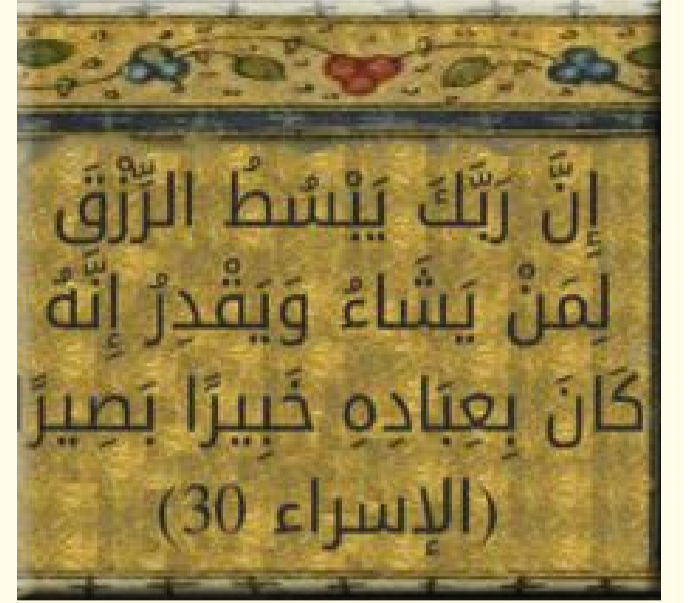 إِنَّ رَبَّكَ يَبْسُطُ الرِّزْقَ
لِمَنْ يَشَاءُ وَيَقْدِرُ إِنَّهُ
كَانَ بِعِبَادِهِ خَبِيرًا بَصِيرًا
(الإسراء 30)